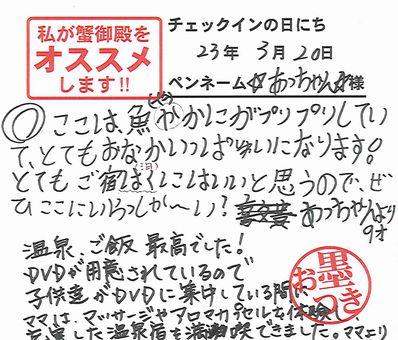 私が蟹御殿を
オススメ
します!!
チェックインの日にち
23年 3月20日
ペンネーム☆あっちゃん☆様
ここは、魚やかにがプリプリしてい
て、とてもおなかいっぱいになります。
とてもご宿はくにはいいと思うので、ぜ
ひここにいらっしゃ〜い? あっちゃんより
9才
温泉、ご飯 最高でした!
DVDが用意されているので
子供達がDVDに集中している間に
ママは、マッサージやアロマカプセルを体験し
充実した温泉宿を満喫できました。ママより
墨
おつき